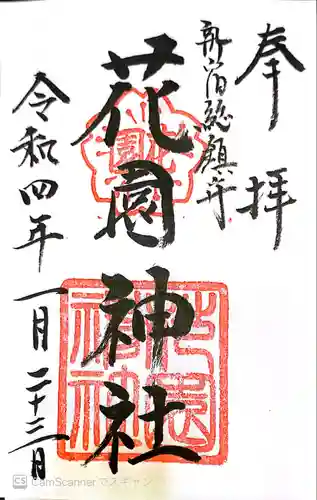 奉拝
新宿総鎮守
花園神社
令和四年一月二十三日
花園
花園神社
CS CamScannerでスキャン